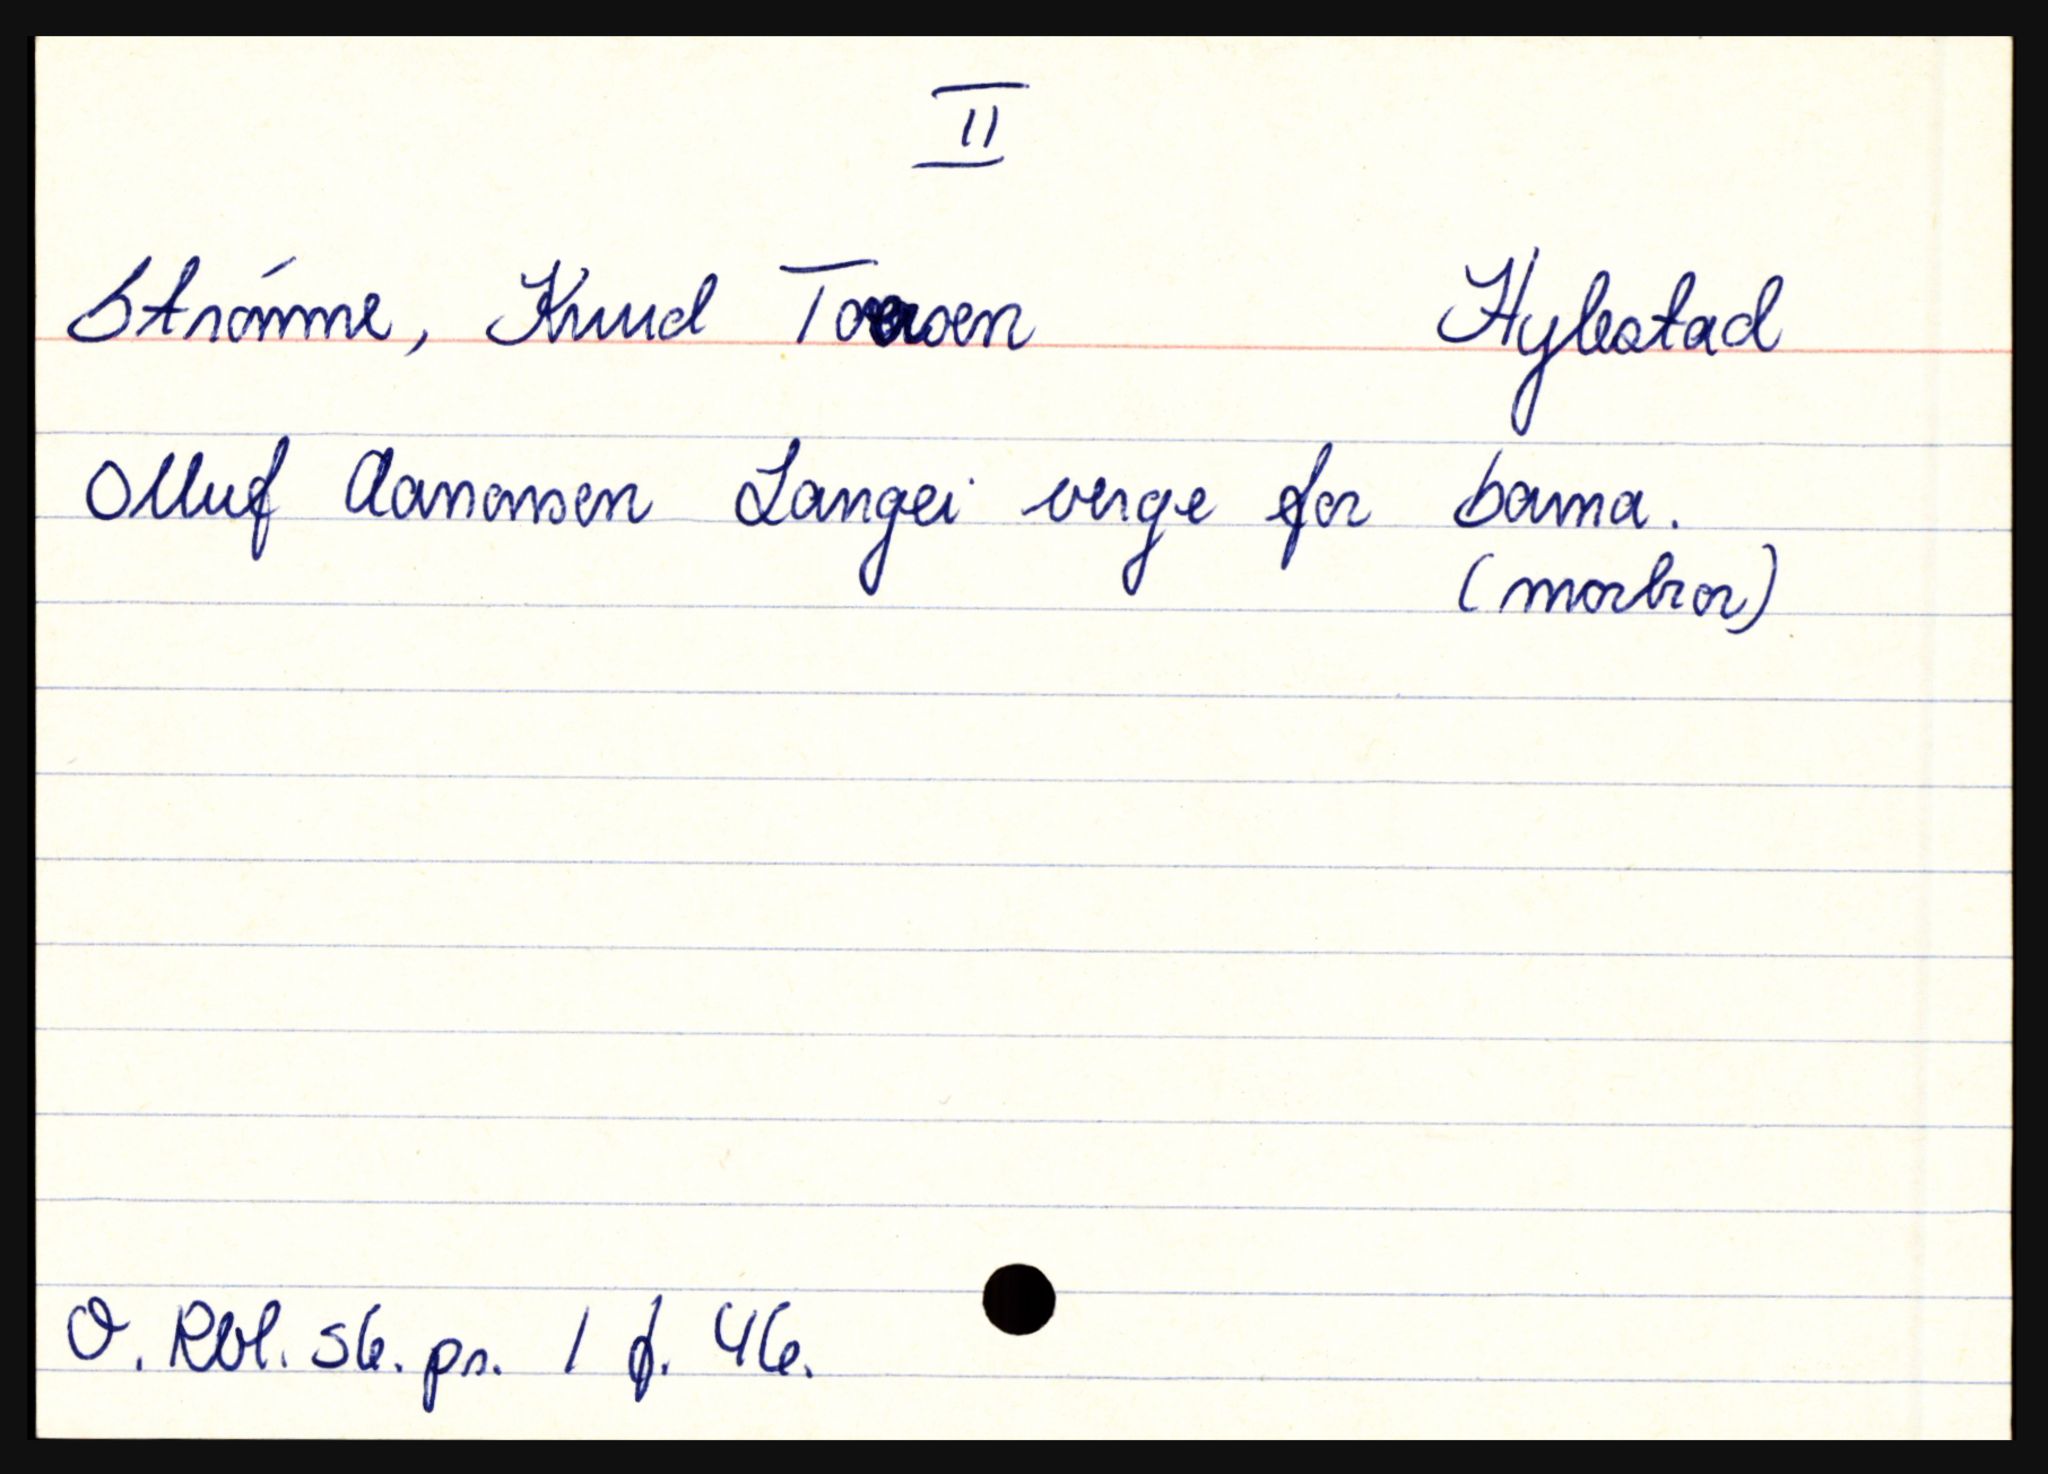 II
Strømme, Knud Toresen Hylestad
Olluf Aanonsen Langei verge for barna.
(morbror)
O. Rbl. sk. pr. 1 f. 46.